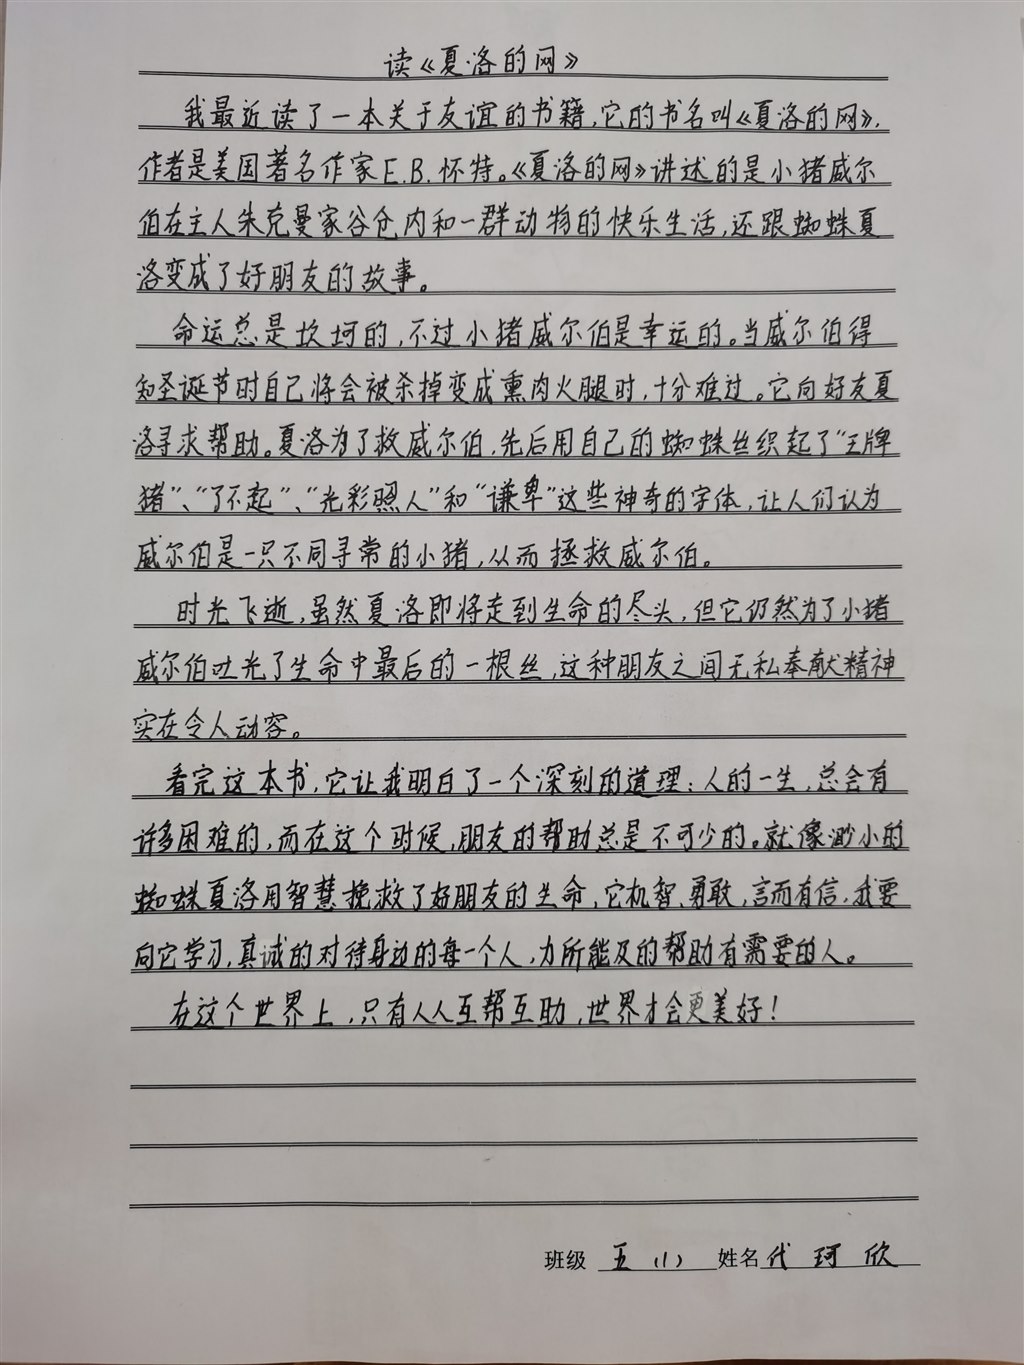 读《夏洛的网》
我最近读了一本关于友谊的书籍,它的书名叫《夏洛的网》,
作者是美国著名作家E.B.怀特。《夏洛的网》讲述的是小猪威尔
伯在主人朱克曼家谷仓内和一群动物的快乐生活,还跟蜘蛛夏
洛变成了好朋友的故事。
命运总是坎坷的,不过小猪威尔伯是幸运的。当威尔伯得
知圣诞节时自己将会被杀掉变成熏肉火腿时,十分难过。它向好友夏
洛寻求帮助。夏洛为了救威尔伯,先后用自己的蜘蛛丝织起了“王牌
猪”、“了不起”、“光彩照人”和“谦卑”这些神奇的字体,让人们认为
威尔伯是一只不同寻常的小猪,从而拯救威尔伯。
时光飞逝,虽然夏洛即将走到生命的尽头,但它仍然为了小猪
威尔伯吐光了生命中最后的一根丝,这种朋友之间无私奉献精神
实在令人动容。
看完这本书,它让我明白了一个深刻的道理:人的一生,总会有
许多困难的,而在这个时候,朋友的帮助总是不可少的。就像渺小的
蜘蛛夏洛用智慧挽救了好朋友的生命,它机智、勇敢,言而有信,我要
向它学习,真诚的对待身边的每一个人,力所能及的帮助有需要的人。
在这个世界上,只有人人互帮互助,世界才会更美好!
班级 五(1) 姓名代珂欣